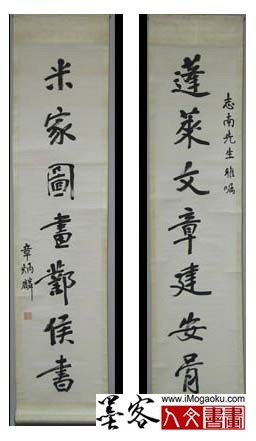 志南先生雅嘱
蓬萊文章建安骨
米家圖畫鄴侯書
章炳麟
墨客 人文書畫
www.iMogaoku.com